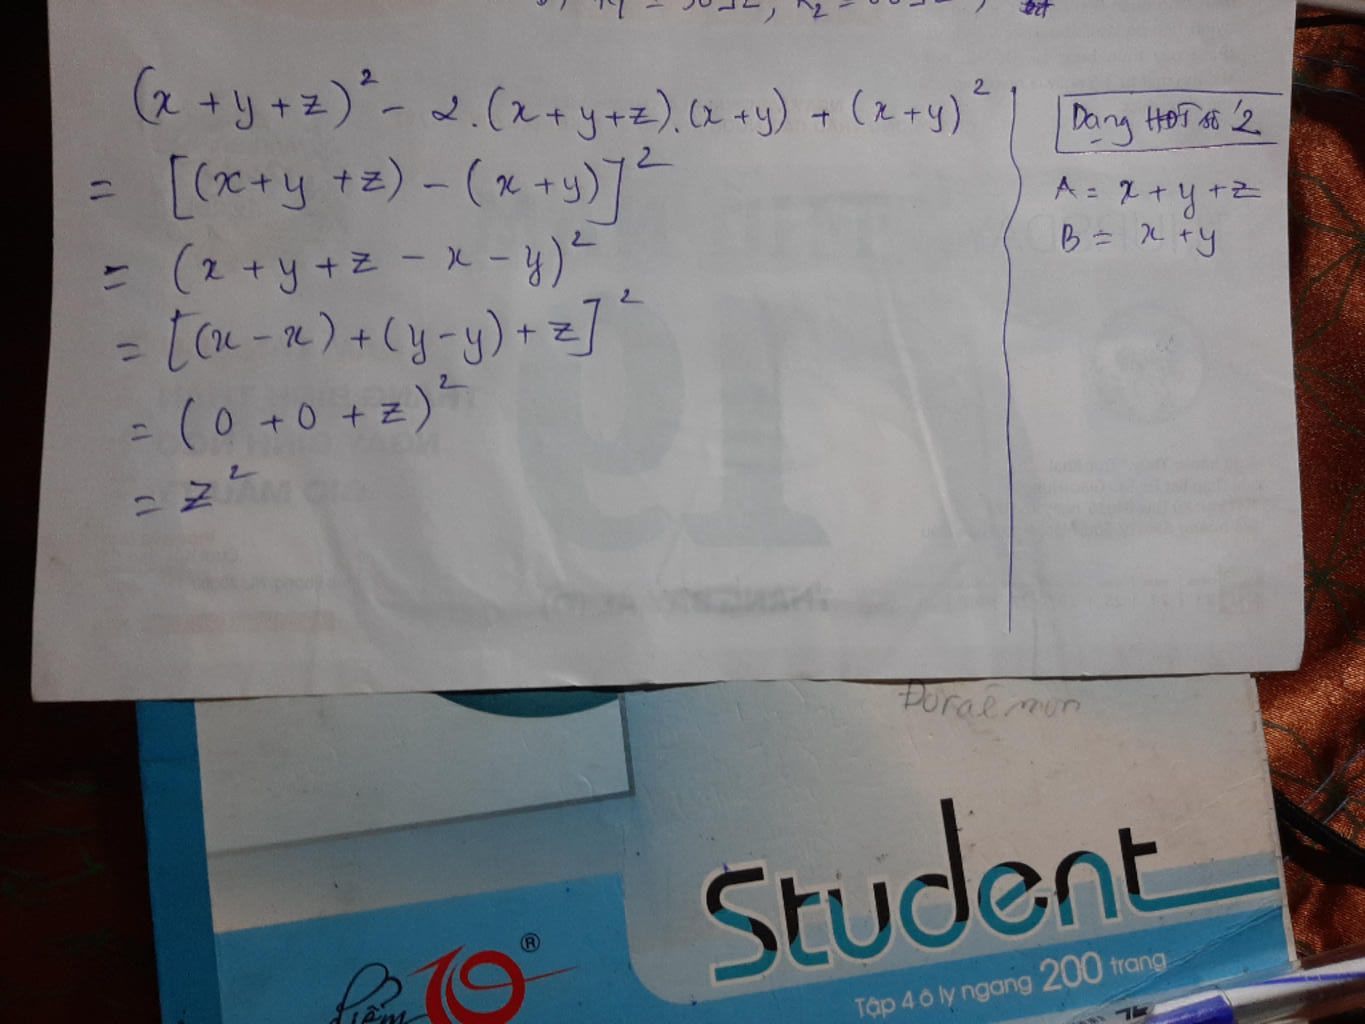 (x + y + z)² - 2.(x + y + z).(x + y) + (x + y)²
= [(x + y + z) - (x + y)]²
= (x + y + z - x - y)²
= [(x - x) + (y - y) + z]²
= (0 + 0 + z)²
= z²
Dạng HĐT số 2
A = x + y + z
B = x + y
Đoraêmon
Student
Điểm 10 ®
Tập 4 ô ly ngang 200 trang